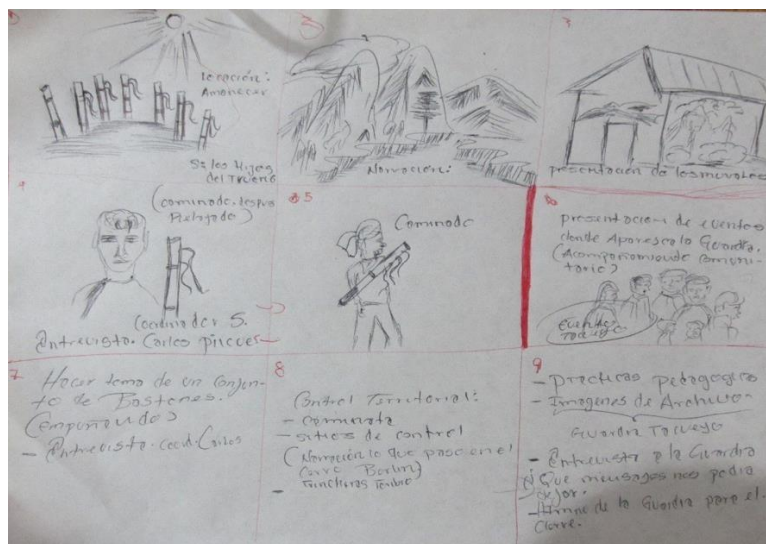 locación:
Amanecer
Si los Hijos
del Trueno
2
Narración:
3
presentación de los murales
4
(caminado,
Relajado)
Coordinador S.
Entrevista. Carlos
5
Caminado
6
presentacion de eventos
donde Aparesca la Guardia.
(Acompañamiento comuni-
tario)
Eventos
Tacueyo
7
Hacer toma de un conjun-
to de Bastones.
(empuñando)
- Entrevista. Coord. Carlos
8
Control Territorial:
- caminata
- sitios de control
(Narración lo que paso en el
Cerro Berlin)
-
9
- practicas pedagogico
- Imagenes de Archivo-
Guardia Tacueyo
- Entrevista a la Guardia
Que mensajes nos podia
dejar.
- Himno de la Guardia para el
cierre.